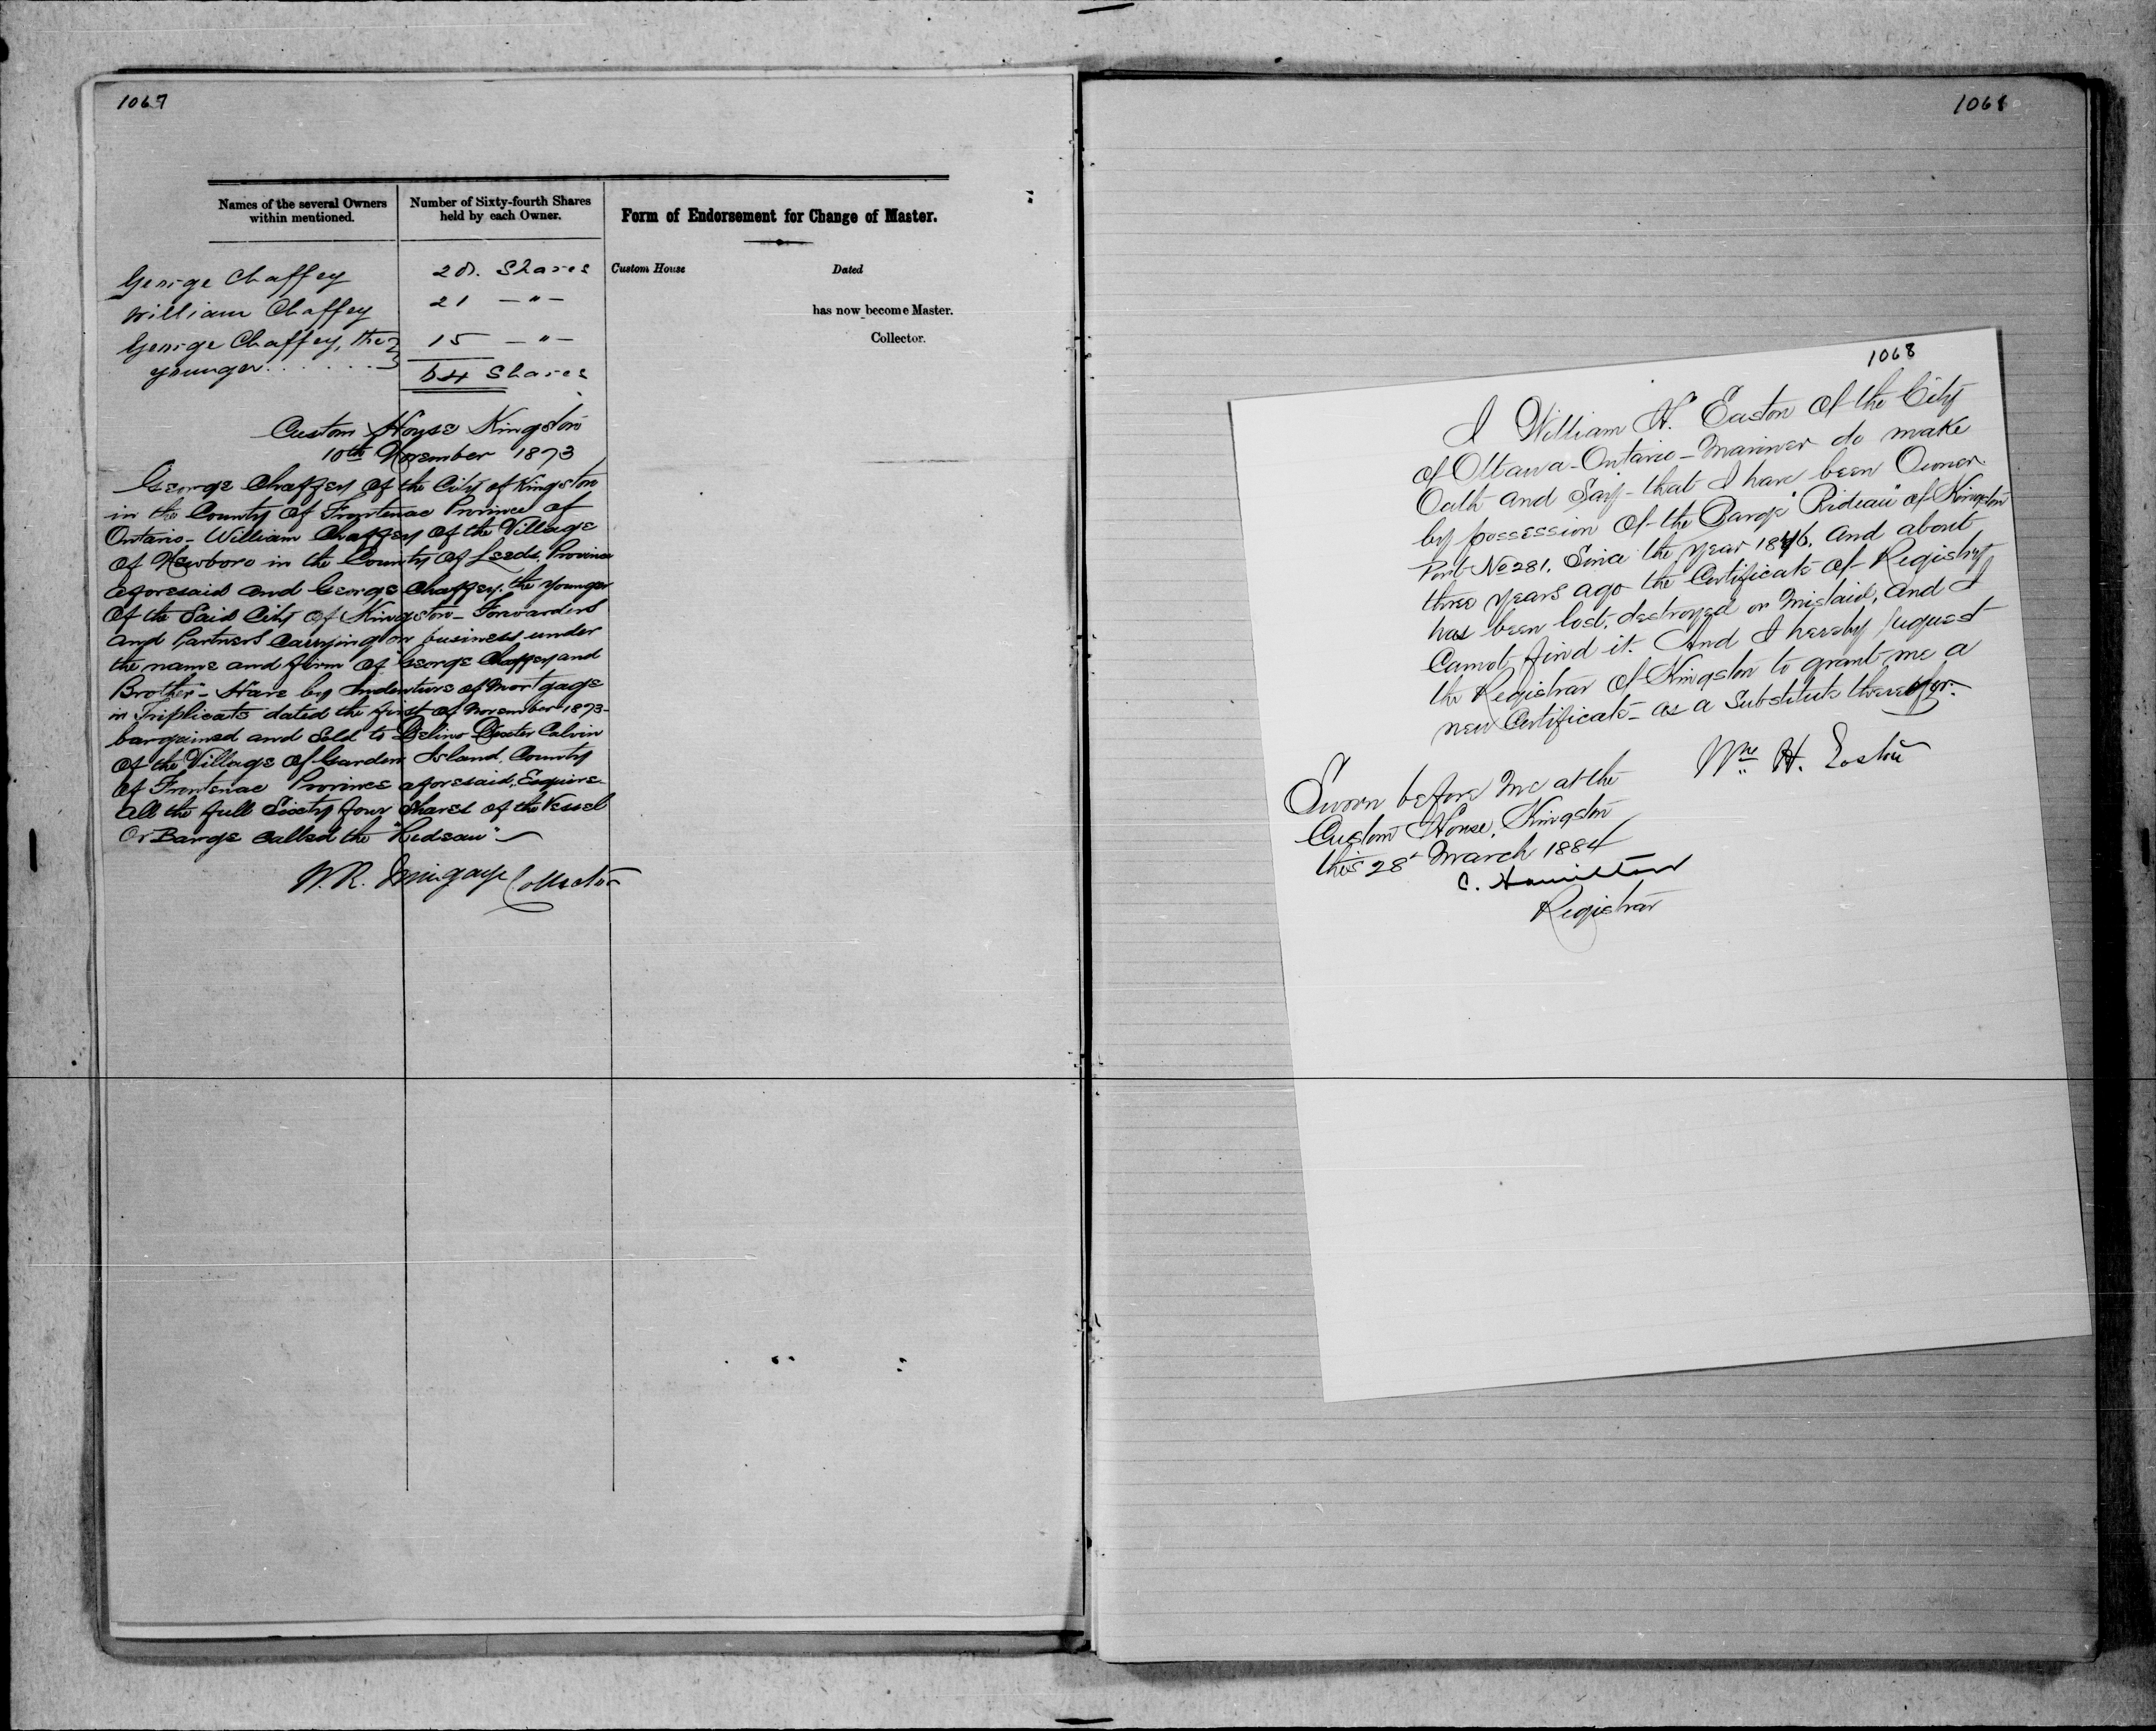 1067
Names of the several Owners within mentioned.
Number of Sixty-fourth Shares held by each Owner.
Form of Endorsement for Change of Master.
George Chaffey 28. Shares
William Chaffey 21 — " —
George Chaffey, the younger...... 15 — " —
64 Shares
Custom House
Dated
has now become Master.
Collector.
Custom House Kingston
10th November 1873
George Chaffey of the City of Kingston
in the County of Frontenac Province of
Ontario - William Chaffey of the Village
of Newboro in the County of Leeds. Province
aforesaid and George Chaffey. the younger
of the Said City of Kingston - Forwarders
and Partners Carrying on business under
the name and firm of "George Chaffey and
Brother" - Have by Indenture of Mortgage
in Triplicate dated the first of November 1873 -
bargained and Sold to Delino Dexter Calvin
of the Village of Garden Island. County
of Frontenac Province aforesaid, Esquire
All the full Sixty four Shares of the Vessel
Or Barge Called the "Redeau" -
W. R. Mingaye Collector
1068
1068
I William H. Easton of the City
of Ottawa - Ontario - Mariner do make
Oath and Say - that I have been Owner
by possession of the Barge "Rideau" of Kingston
Port No 281. Since the year 1876. and about
three years ago the Certificate of Registry
has been lost, destroyed or mislaid, and I
Cannot find it. And I hereby request
the Registrar of Kingston to grant me a
new Certificate - as a Substitute therefor.
Wm H. Easton
Sworn before me at the
Custom House, Kingston
this 28th March 1884
C. Hamilton
Registrar